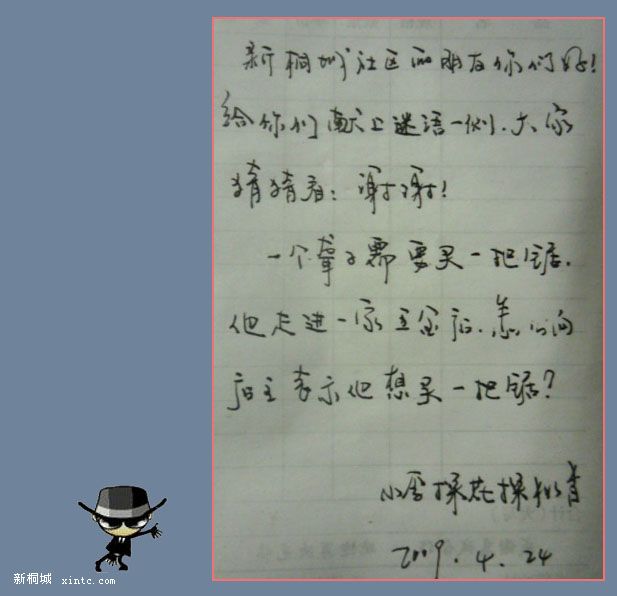 新桐城社区的朋友你们好!
给你们献上迷语一例.大家
猜猜看:谢谢!
一个聋子需要买一把锯.
他走进一家五金店.怎么向
店主表示他想买一把锯?
小雪
2009.4.24
新桐城 xintc.com